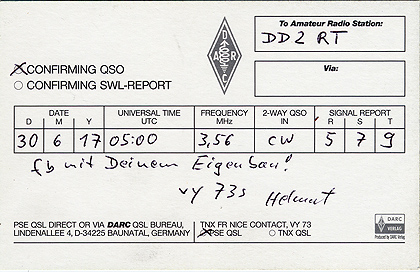 To Amateur Radio Station:
DD2RT
DARC
Via:
CONFIRMING QSO
CONFIRMING SWL-REPORT
DATE UNIVERSAL TIME FREQUENCY 2-WAY QSO SIGNAL REPORT
D M Y UTC MHz IN R S T
30 6 17 05:00 3,56 CW 5 7 9
fb mit Deinem Eigenbau!
vy 73s Helmut
PSE QSL DIRECT OR VIA DARC QSL BUREAU,
LINDENALLEE 4, D-34225 BAUNATAL, GERMANY
TNX FR NICE CONTACT, VY 73
PSE QSL TNX QSL
DARC
VERLAG
Produced by DARC Verlag